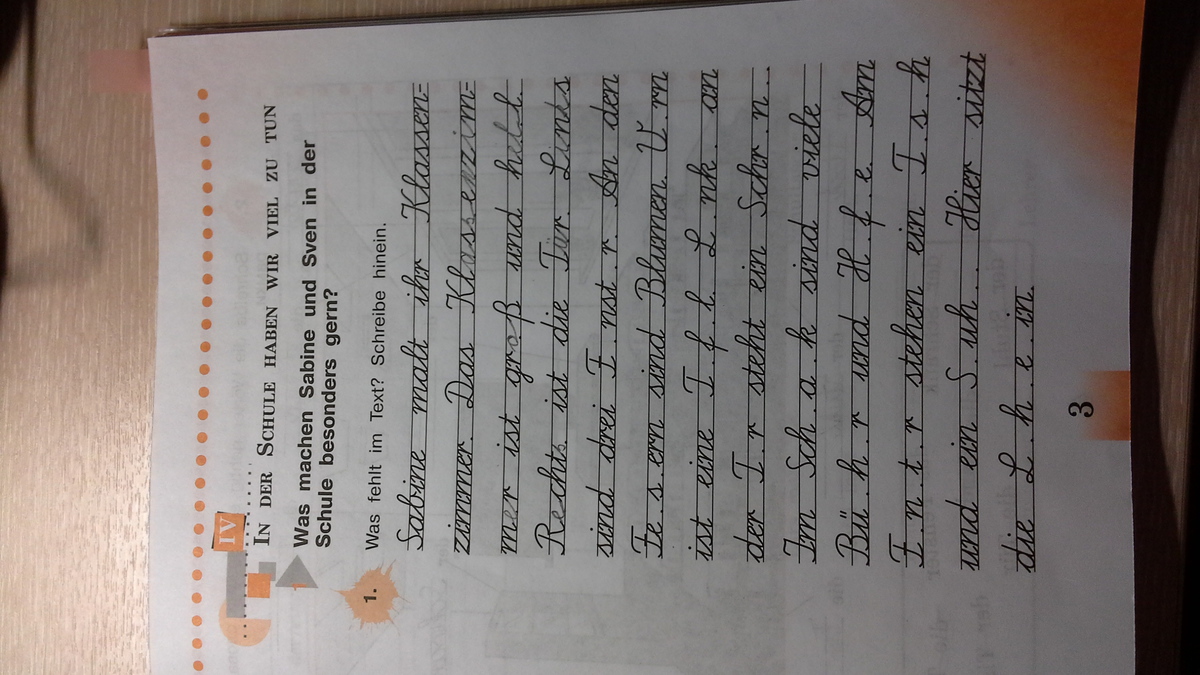 IV
IN DER SCHULE HABEN WIR VIEL ZU TUN
Was machen Sabine und Sven in der
Schule besonders gern?
1.
Was fehlt im Text? Schreibe hinein.
Sabine malt ihr Klassen=
zimmer. Das Klassenzim=
mer ist groß und hell.
Rechts ist die Tür. Links
sind drei F.nst.r. An den
Fe.s.ern sind Blumen. V.rn
ist eine T.f.l. L.nk. an
der T.r steht ein Schr.n..
Im Sch.a.k sind viele
Bü.h.r und H.f.e. Am
F.n.t.r stehen ein T.s.h
und ein S.uh.. Hier sitzt
die L.h.e.in.
3